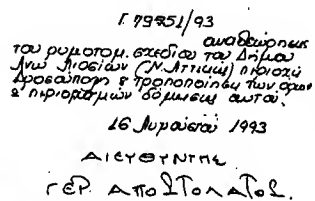 Γ. 79851/93
αναθεώρησις
του ρυμοτομ. σχεδίου του Δήμου
Άνω Λιοσίων (Ν. Αττικής) περιοχή
Δροσούπολη & τροποποίηση των όρων
& περιορισμών δόμησης αυτού.
16 Αυγούστου 1993
ΔΙΕΥΘΥΝΤΗΣ
ΓΕΡ. ΑΠΟΣΤΟΛΑΤΟΣ